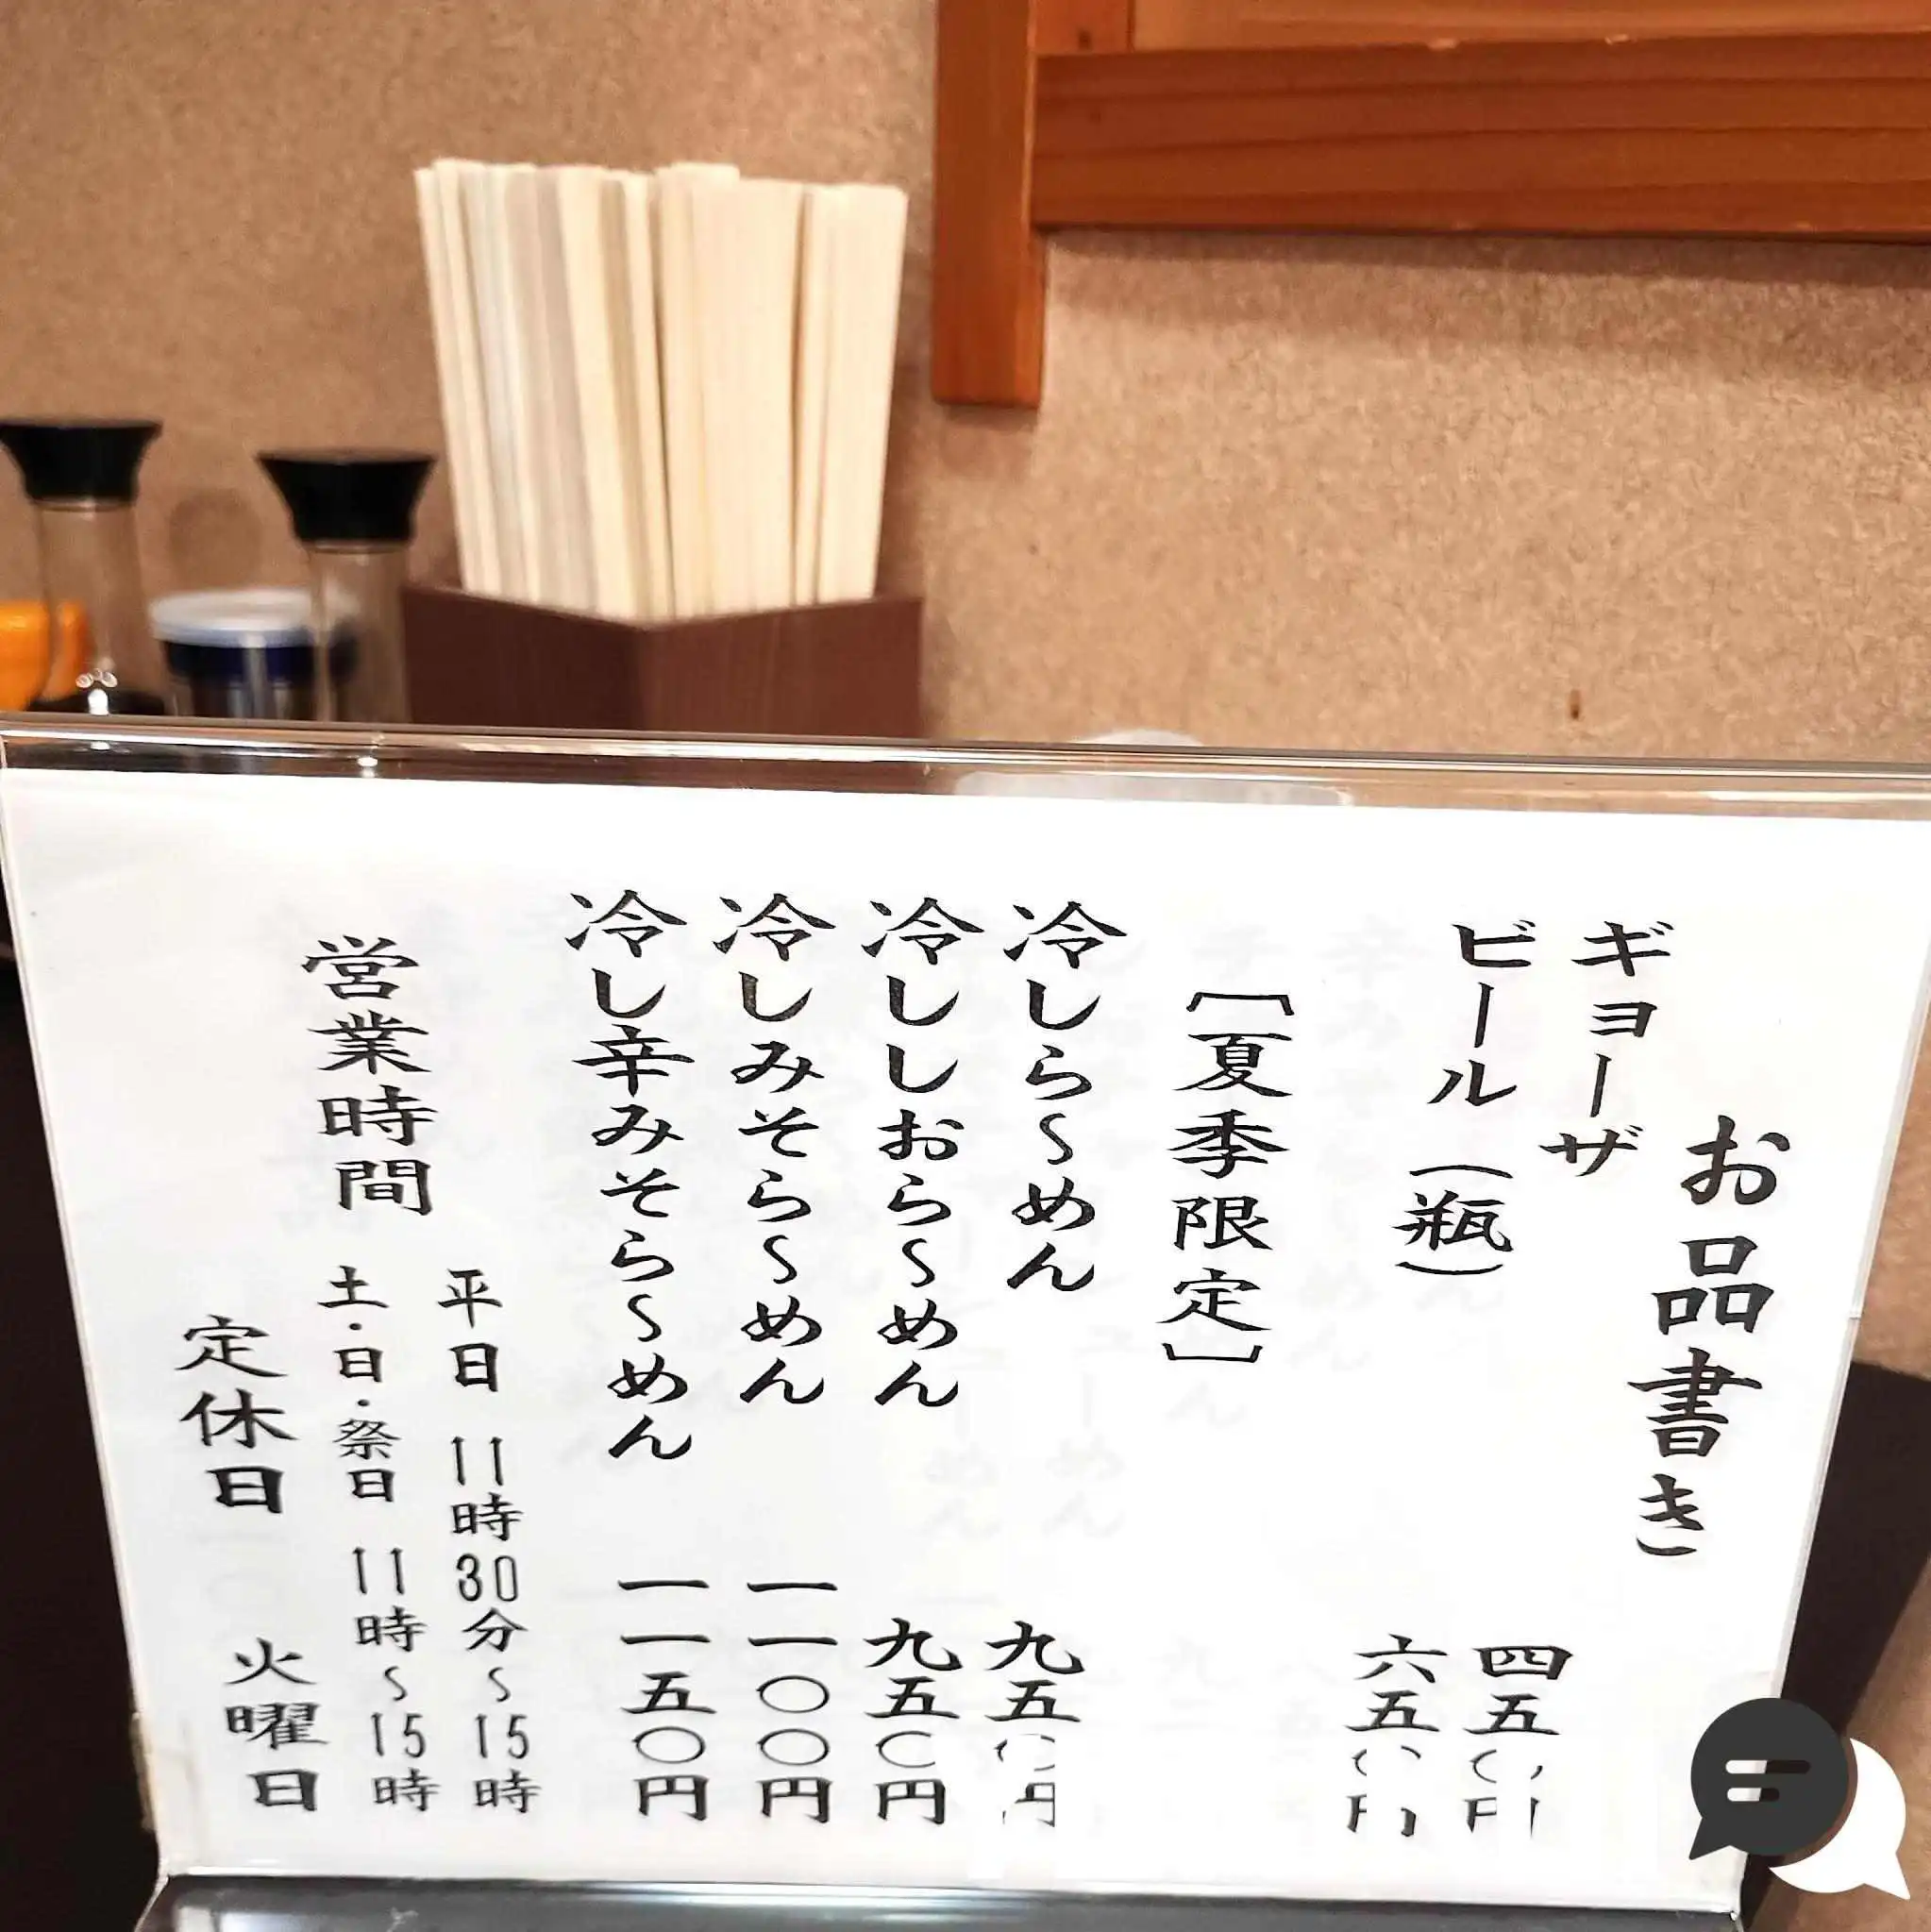 お品書き
ギョーザ 四五〇円
ビール(瓶) 六五〇円
[夏季限定]
冷しら〜めん 九五〇円
冷ししおら〜めん 九五〇円
冷しみそら〜めん 一一〇〇円
冷し辛みそら〜めん 一一五〇円
営業時間
平日 11時30分〜15時
土・日・祭日 11時〜15時
定休日 火曜日